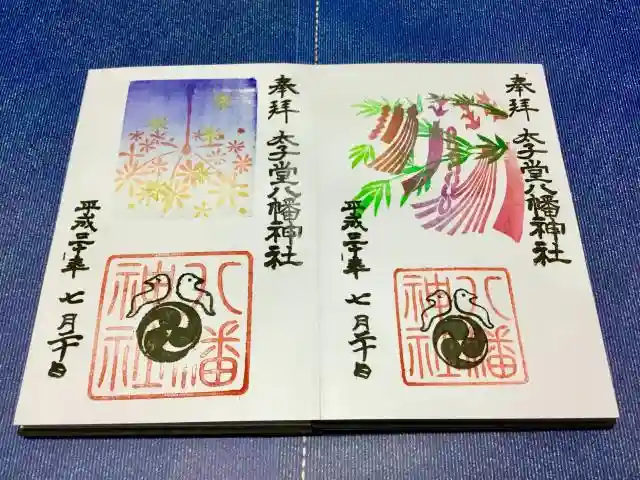 奉拝
太子堂八幡神社
平成 年 七月二十日
八幡
神社
奉拝
太子堂八幡神社
平成 年 七月二十日
八幡
神社